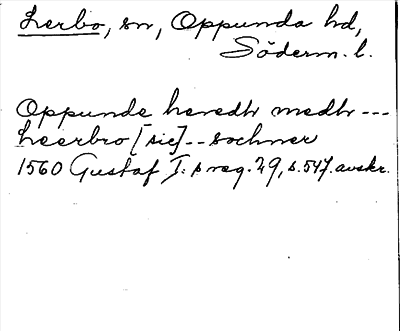 Lerbo, sn, Oppunda hd,
Söderm. l.
Oppunde heredh medh ---
Leerbro [sic] -- sochner
1560 Gustaf I:s reg. 29, s. 547. avskr.